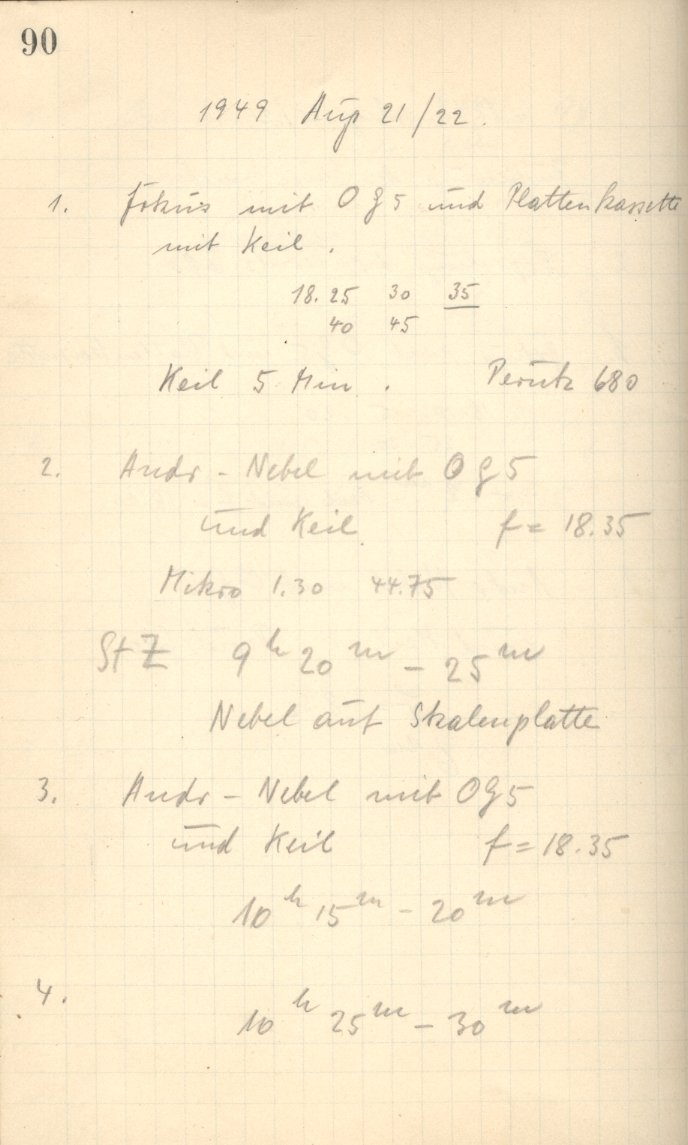 90
1949 Aug 21/22.
1. Fokus mit OG5 und Plattenkassette
mit Keil.
18.25 30 35
40 45
Keil 5 Min. Perutz 680
2. Andr-Nebel mit OG5
und Keil f = 18.35
Mikro 1.30 44.75
StZ 9h 20m - 25m
Nebel auf Skalenplatte
3. Andr-Nebel mit OG5
und Keil f = 18.35
10h 15m - 20m
4. 10h 25m - 30m